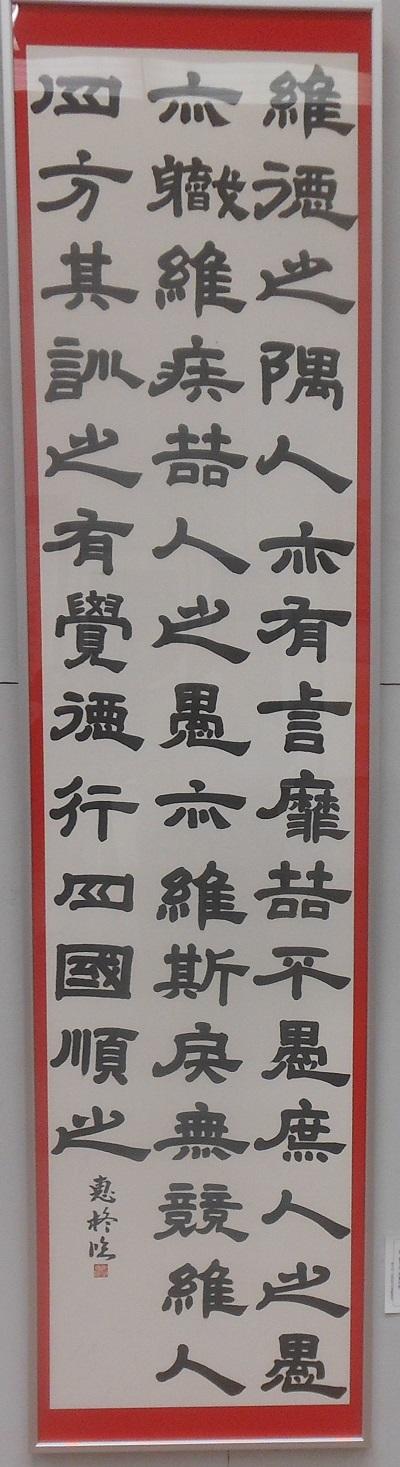 維德之隅人亦有言靡喆不愚庶人之愚
亦軄維疾喆人之愚亦維斯戾無競維人
四方其訓之有覺德行四國順之
惠柊臨